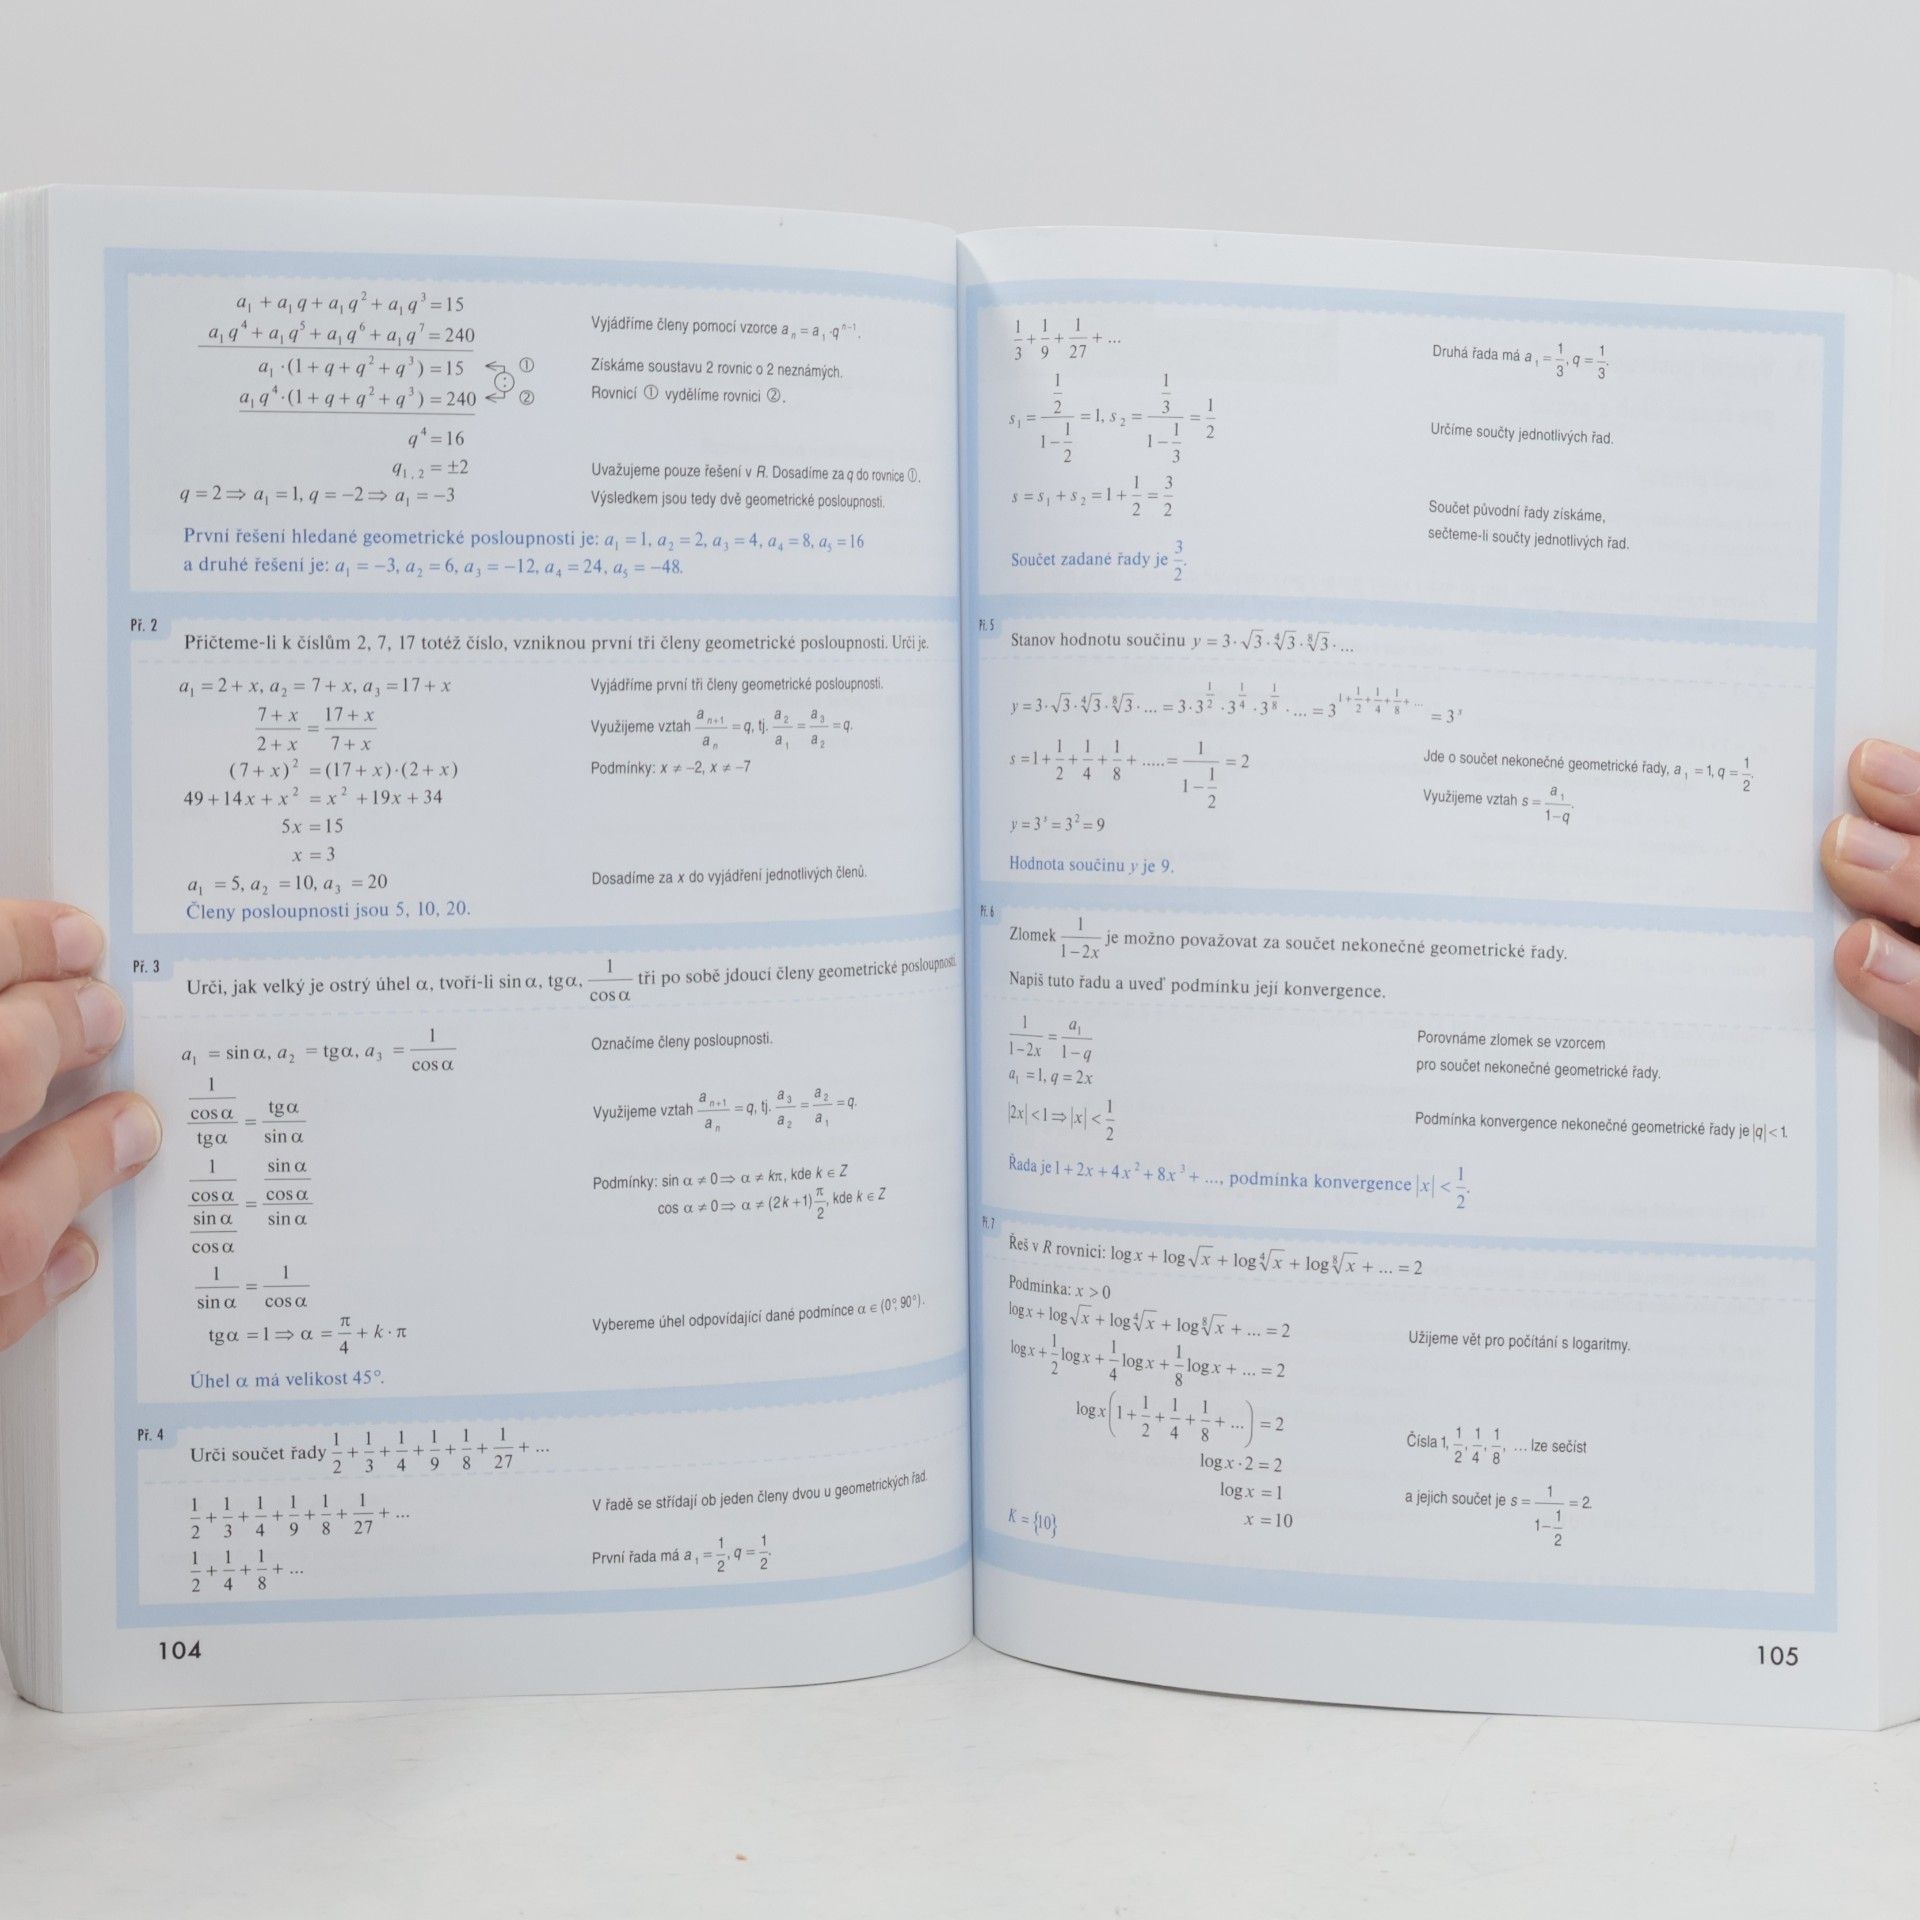 a₁ + a₁q + a₁q² + a₁q³ = 15
a₁q⁴ + a₁q⁵ + a₁q⁶ + a₁q⁷ = 240 Vyjádříme členy pomocí vzorce aₙ = a₁·qⁿ⁻¹.
a₁·(1 + q + q² + q³) = 15 ① Získáme soustavu 2 rovnic o 2 neznámých.
a₁q⁴·(1 + q + q² + q³) = 240 ② Rovnicí ① vydělíme rovnici ②.
q⁴ = 16
q₁,₂ = ±2 Uvažujeme pouze řešení v R. Dosadíme za q do rovnice ①.
q = 2 ⇒ a₁ = 1, q = −2 ⇒ a₁ = −3 Výsledkem jsou tedy dvě geometrické posloupnosti.
První řešení hledané geometrické posloupnosti je: a₁ = 1, a₂ = 2, a₃ = 4, a₄ = 8, a₅ = 16
a druhé řešení je: a₁ = −3, a₂ = 6, a₃ = −12, a₄ = 24, a₅ = −48.
Př. 2 Přičteme-li k číslům 2, 7, 17 totéž číslo, vzniknou první tři členy geometrické posloupnosti. Urči je.
a₁ = 2 + x, a₂ = 7 + x, a₃ = 17 + x Vyjádříme první tři členy geometrické posloupnosti.
(7 + x)/(2 + x) = (17 + x)/(7 + x) Využijeme vztah aₙ₊₁/aₙ = q, tj. a₂/a₁ = a₃/a₂ = q.
(7 + x)² = (17 + x)·(2 + x) Podmínky: x ≠ −2, x ≠ −7
49 + 14x + x² = x² + 19x + 34
5x = 15
x = 3
a₁ = 5, a₂ = 10, a₃ = 20 Dosadíme za x do vyjádření jednotlivých členů.
Členy posloupnosti jsou 5, 10, 20.
Př. 3 Urči, jak velký je ostrý úhel α, tvoří-li sin α, tg α, 1/cos α tři po sobě jdoucí členy geometrické posloupnosti.
a₁ = sin α, a₂ = tg α, a₃ = 1/cos α Označíme členy posloupnosti.
(1/cos α)/tg α = tg α/sin α Využijeme vztah aₙ₊₁/aₙ = q, tj. a₃/a₂ = a₂/a₁ = q.
(1/cos α)/(sin α/cos α) = (sin α/cos α)/sin α Podmínky: sin α ≠ 0 ⇒ α ≠ kπ, kde k ∈ Z
cos α ≠ 0 ⇒ α ≠ (2k + 1)π/2, kde k ∈ Z
1/sin α = 1/cos α
tg α = 1 ⇒ α = π/4 + k·π Vybereme úhel odpovídající dané podmínce α ∈ (0°, 90°).
Úhel α má velikost 45°.
Př. 4 Urči součet řady 1/2 + 1/3 + 1/4 + 1/9 + 1/8 + 1/27 + ...
1/2 + 1/3 + 1/4 + 1/9 + 1/8 + 1/27 + ... V řadě se střídají ob jeden členy dvou u geometrických řad.
1/2 + 1/4 + 1/8 + ... První řada má a₁ = 1/2, q = 1/2.
104
1/3 + 1/9 + 1/27 + ... Druhá řada má a₁ = 1/3, q = 1/3.
s₁ = (1/2)/(1 − 1/2) = 1, s₂ = (1/3)/(1 − 1/3) = 1/2 Určíme součty jednotlivých řad.
s = s₁ + s₂ = 1 + 1/2 = 3/2 Součet původní řady získáme,
sečteme-li součty jednotlivých řad.
Součet zadané řady je 3/2.
Př. 5 Stanov hodnotu součinu y = 3·√3·⁴√3·⁸√3·...
y = 3·√3·⁴√3·⁸√3·... = 3·3^(1/2)·3^(1/4)·3^(1/8)·... = 3^(1 + 1/2 + 1/4 + 1/8 + ...) = 3ˢ
s = 1 + 1/2 + 1/4 + 1/8 + ..... = 1/(1 − 1/2) = 2 Jde o součet nekonečné geometrické řady, a₁ = 1, q = 1/2.
Využijeme vztah s = a₁/(1−q).
y = 3ˢ = 3² = 9
Hodnota součinu y je 9.
Př. 6 Zlomek 1/(1−2x) je možno považovat za součet nekonečné geometrické řady.
Napiš tuto řadu a uveď podmínku její konvergence.
1/(1−2x) = a₁/(1−q) Porovnáme zlomek se vzorcem
a₁ = 1, q = 2x pro součet nekonečné geometrické řady.
|2x| < 1 ⇒ |x| < 1/2 Podmínka konvergence nekonečné geometrické řady je |q| < 1.
Řada je 1 + 2x + 4x² + 8x³ + ..., podmínka konvergence |x| < 1/2.
Př. 7 Řeš v R rovnici: log x + log √x + log ⁴√x + log ⁸√x + ... = 2
Podmínka: x > 0
log x + log √x + log ⁴√x + log ⁸√x + ... = 2 Užijeme vět pro počítání s logaritmy.
log x + 1/2 log x + 1/4 log x + 1/8 log x + ... = 2
log x (1 + 1/2 + 1/4 + 1/8 + ...) = 2 Čísla 1, 1/2, 1/4, 1/8, ... lze sečíst
log x · 2 = 2
log x = 1 a jejich součet je s = 1/(1−1/2) = 2.
K = {10} x = 10
105